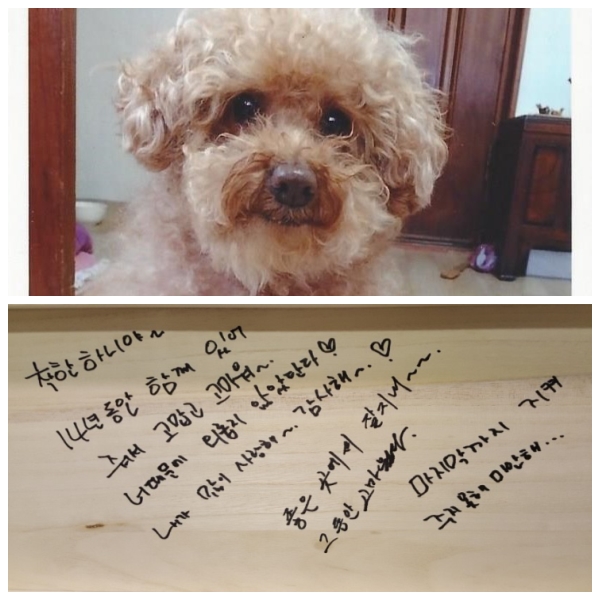 착한 하니야~
14년동안 함께 있어
주어서 고맙고 고마워~.
너때문에 더 많이 웃었단다♡
내가 많이 사랑해~. 감사해~. ♡
좋은 곳에서 잘지내~~.
그동안 고마웠다.
마지막까지 지켜
주지 못해 미안해...